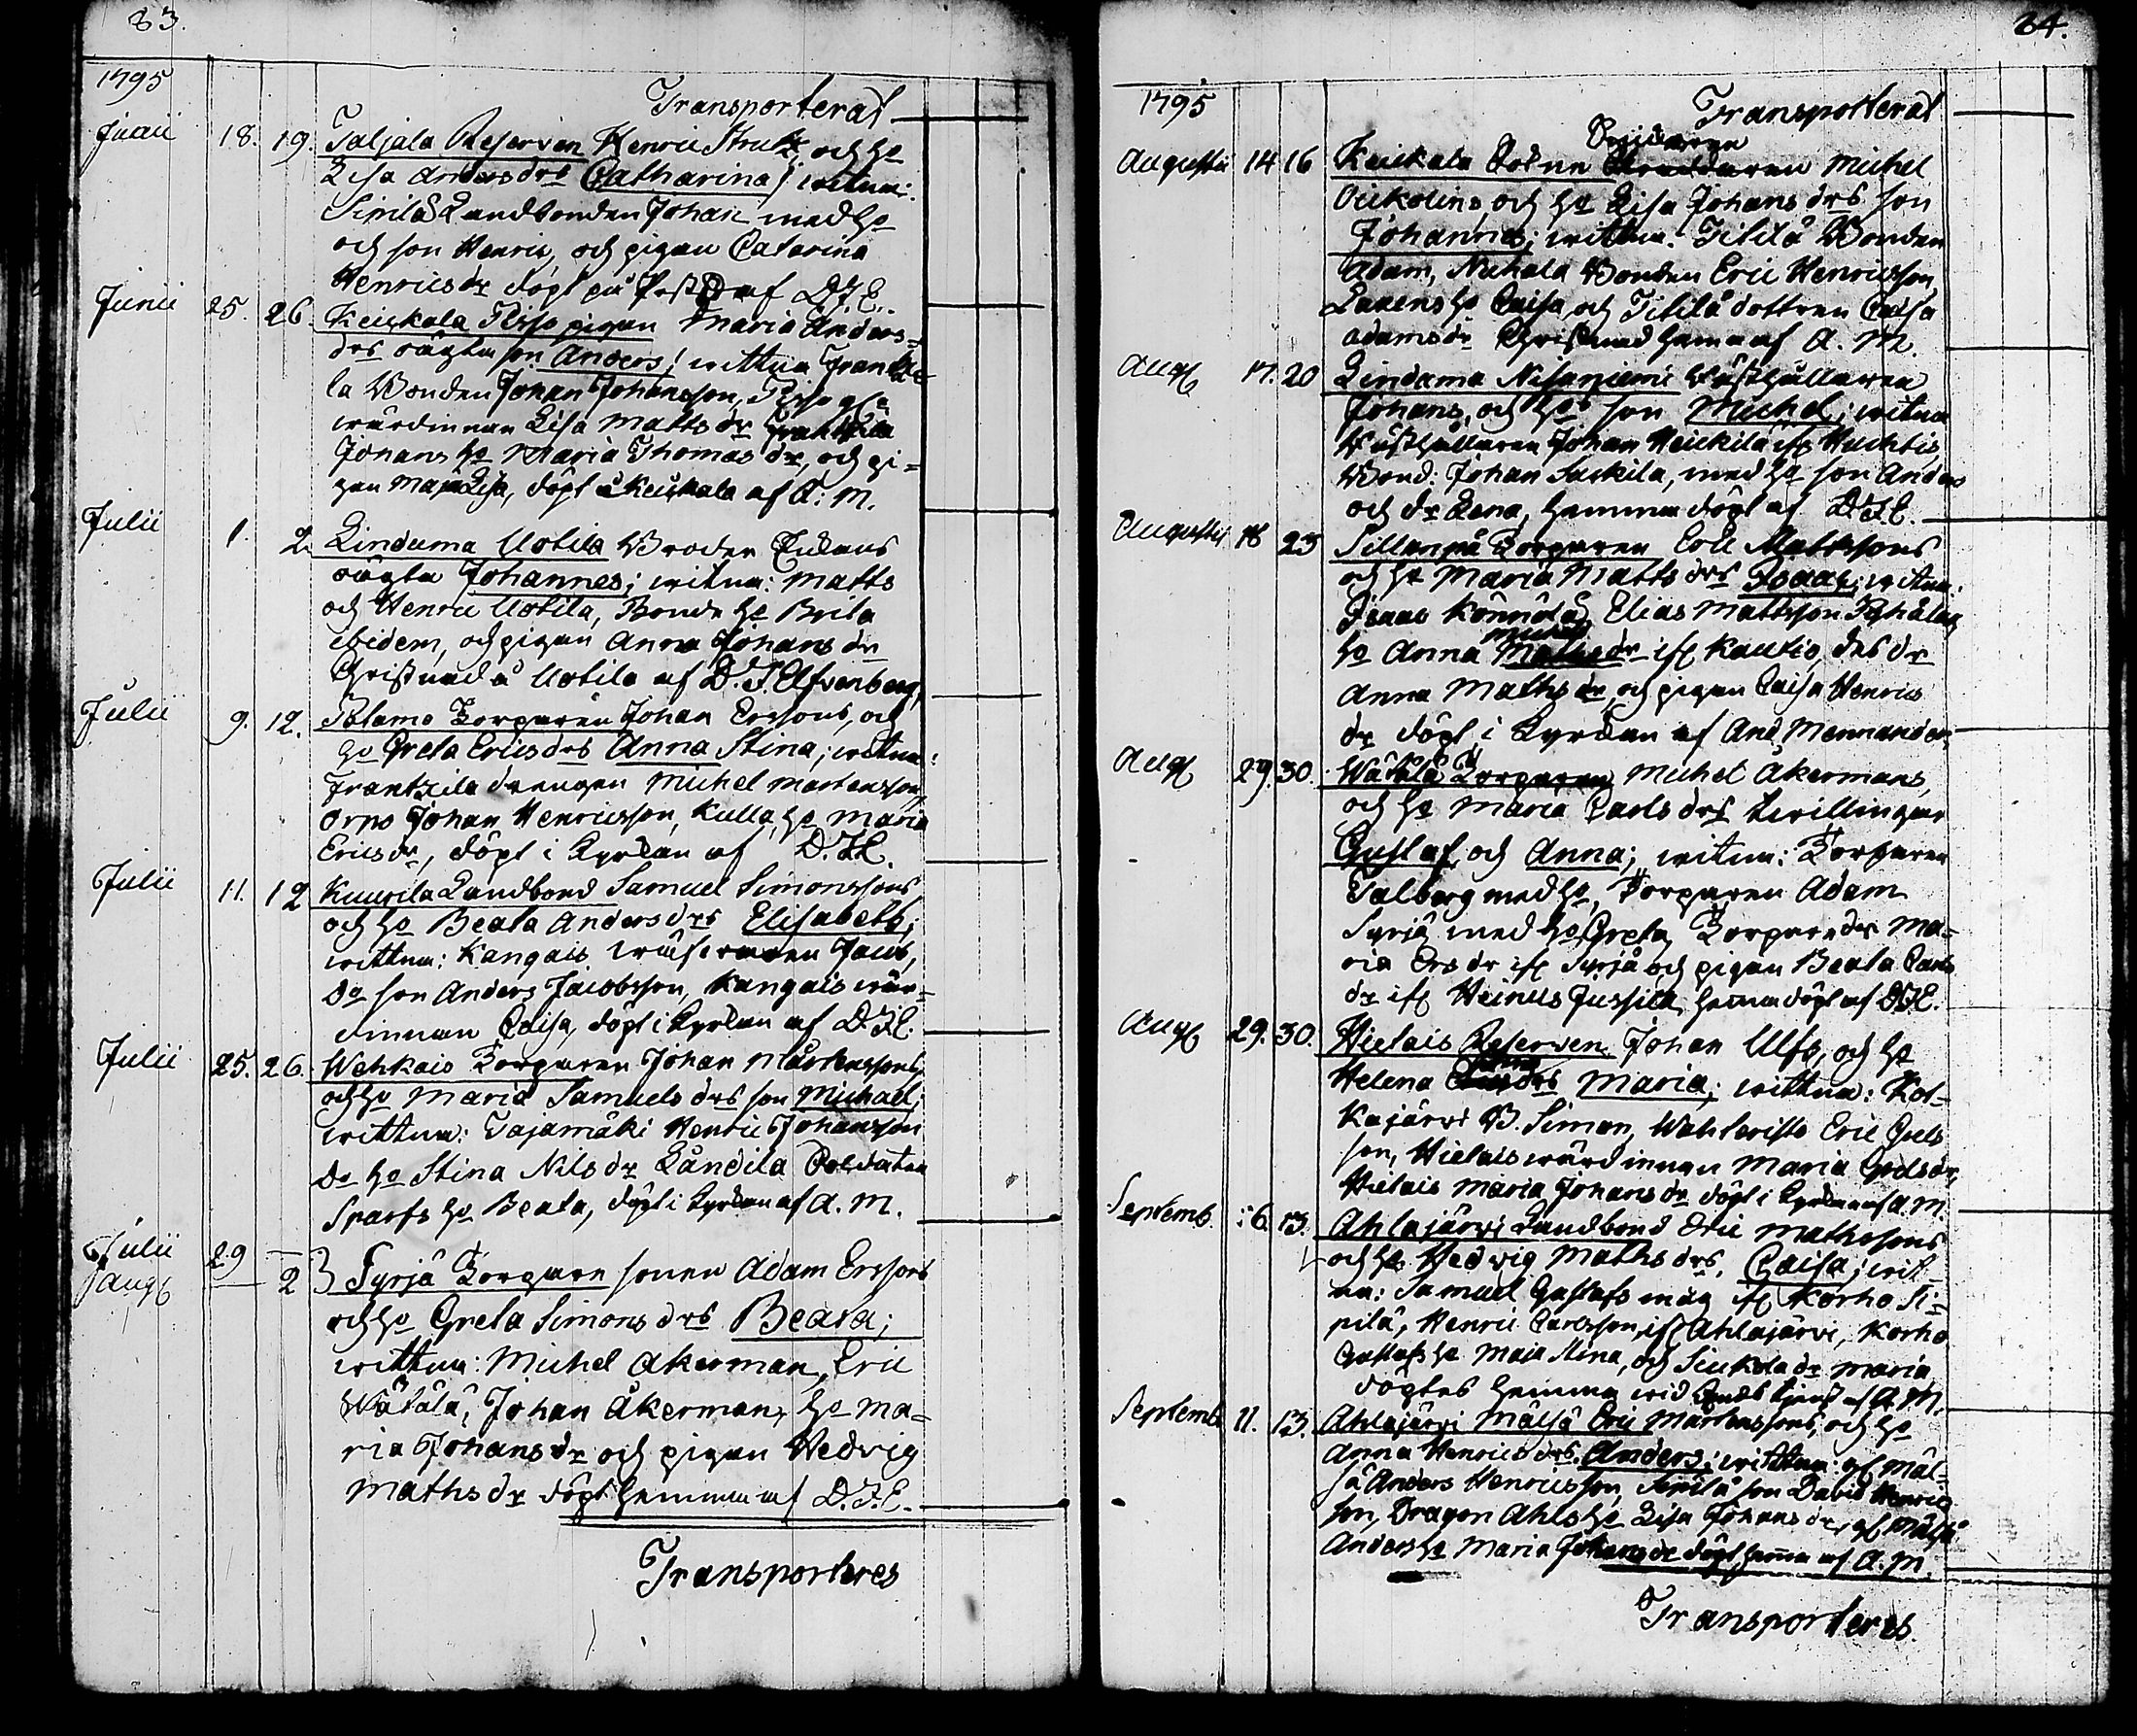 83.
1795
Transporterat
Junii 18. 19. Taljala Reserven Henric Struts, och ho
Lisa Anders drs Catharina; witnn:
Sipilä Landbonden Johan med ho
och son Henric, och pigan Catarina
Henrics dr döpt på af D.J.E.
Junii 25. 26. Keickala Piso pigan Maria Anders=
drs oägta son Anders; wittnn
la Bonden Johan Johansson, Piso
wärdinnan Lisa Matts dr Franttila
Johans ho Maria Thomas dr, och pi=
gan Maja Lisa, döpt å Keickala af A: M.
Julii 1. 2. Lindama Uotila Broder
oägta Johannes; witnn: Matts
och Henric Uotila, Bonde ho Brita
ibidem, och pigan Anna Johans dr
Christnad å Uotila af D. J. Elfvenberg,
Julii 9. 12. Palamo Torparen Johan Erssons, och
ho Greta Erics drs Anna Stina; witnn:
Frantzila drengen Michel Mortensson,
Orpo Johan Henricsson, Kulla ho Maria
Erics dr, döpt i Kyrkan af D.J.E.
Julii 11. 12 Kuurila Landbond Samuel Simonssons
och ho Beata Anders drs Elisabeth;
wittnn: Kangais Jacob,
Do son Anders Jacobsson, Kangais wär=
dinnan Caisa, döpt i Kyrkan af D.J.E.
Julii 25. 26. Wehkais Torparen Johan Mårtenssons
och ho Maria Samuels drs son Michael;
wittnn: Tajamäki Henric Johansson
Do ho Stina Nils dr Låndila Soldaten
Sparfs ho Beata, döpt i Kyrkan af A. M.
Julii 29 —
Aug — 2 Syrjä Torpare sonen Adam Erssons
och ho Greta Simons drs Beata;
wittnn: Michel Åkerman, Eric
Wätälä, Johan Åkerman, ho Ma=
ria Johans dr och pigan Hedvig
Maths dr döpt hemma af D.J.E.
Transporteres
84.
1795
Transporterat
Augusti 14 16 Keickala Michel
och ho Lisa Johans drs son
Johannes; wittnn: Titilä Bonden
Adam, Nuhala Bonden Eric Henricsson,
ho Caisa, och Titilä dottren Caisa
Adams dr Christnad hema af A. M.
Aug 17. 20 Lindama Nisaniemi Wästhållaren
Johans, och ho son Michel; witnn
Wästhållaren Johan Heickilä ifr Huchtis,
Bond: Johan Suckila, med ho son Anders
och dr Lena, hemma döpt af D.J.E.
Augusti 18 23 Sillanpä Torparen Eric Mattssons
och ho Maria Matts drs Isaac; witnn
Isaac Könnölä, Elias Mattsson
ho Anna Michels dr ifr Kautio, des dr
Anna Maths dr, och pigan Caisa Henrics
dr döpt i Kyrkan af And. Mennander
Aug 29. 30. Wätälä Torparen Michel Åkermans,
och ho Maria Carls drs twillingar
Gustaf, och Anna; witnn: Torparen
Talberg med ho, Torparen Adam
Syrjä med ho Greta, Torpare dr Ma=
ria Ers dr ifr Syrjä och pigan Beata Carls
dr ifr Heinus Jussila, hemma döpt af D.J.E.
Aug 29. 30. Hietais Reserven Johan Ulfs, och ho
Helena drs Maria; wittnn: Kol=
kajärwi B. Simon, Wahteristo Eric Joels
son, Hietais wärdinnan Maria Joels dr,
Hietais Maria Johans dr döpt i Kyrkan af A. M.
Septemb. 6. 13. Ahlajärwi Landbond Eric Mathssons
och ho Hedwig Maths drs, Caisa; wit
nn: Samuel Gustafs måg ifr Korho Si=
pilä, Henric Carlsson, ifr Ahlajärwi, Korho
Gustafs ho Maja Stina, och Siukola dr Maria,
döptes hemma wid af A. M.
Septemb 11. 13. Ahlajärwi Mälsä Eric Mårtenssons, och ho
Anna Henrics drs. Anders; wittnn: gl Mäl=
sä Anders Henricsson, Sipilä son David Henrics
son, Dragon Ahls ho Lisa Johans dr, gl Mälsä
Anders ho Maria Johans dr döpt hema af A. M.
Transporteres.